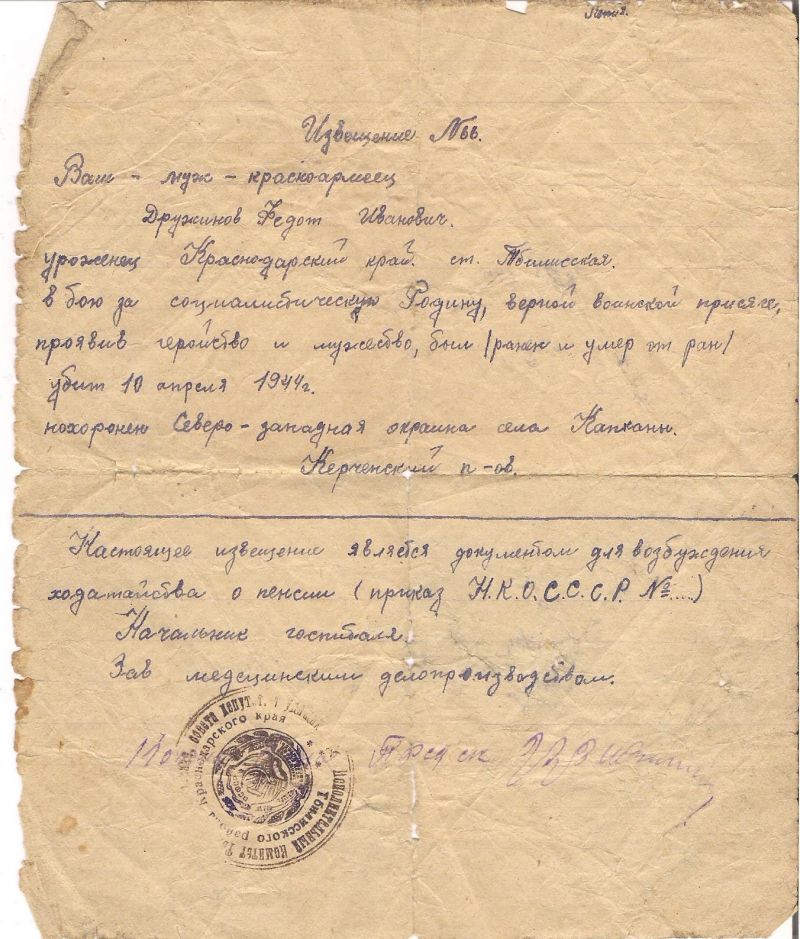 Копия.
Извещение № 66.
Ваш - муж - красноармеец
Дружинов Федот Иванович.
уроженец Краснодарский край. ст. Тбилисская.
в бою за социалитическую Родину, верной воинской присяге,
проявив геройство и мужество, был /ранен и умер от ран/
убит 10 апреля 1944г.
похоронен Северо-западная окраина села Капканы.
Керченский п-ов.
Настоящее извещение является документом для возбуждения
ходатайства о пенсии (приказ Н.К.О.С.С.С.Р. №....)
Начальник госпиталя.
Зав медецинским делопроизводством.
Исполнительный комитет
Тбилисского
Краснодарского края